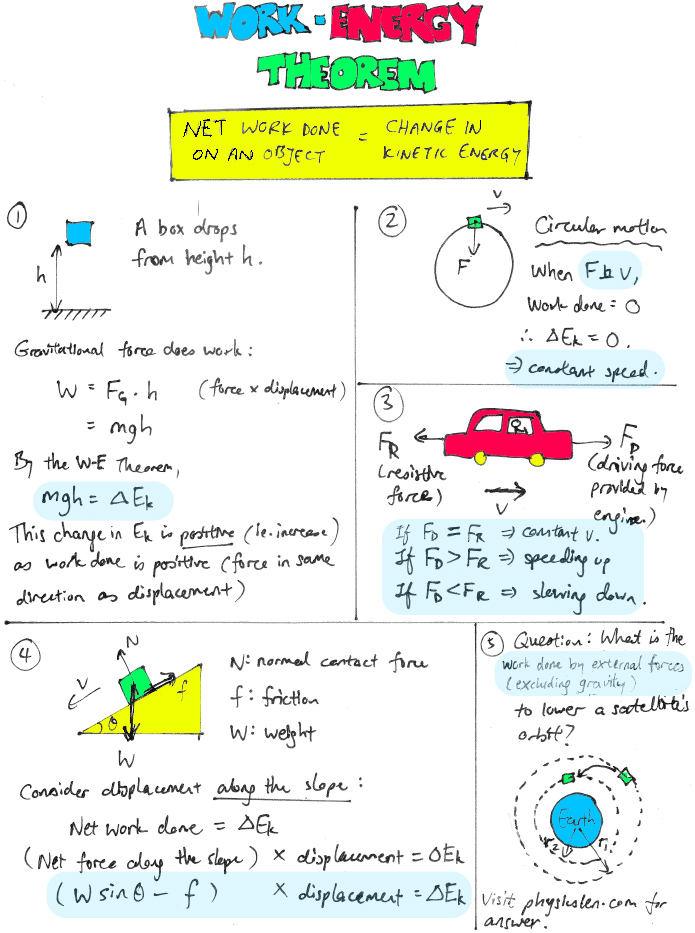 WORK - ENERGY
THEOREM
NET WORK DONE = CHANGE IN
ON AN OBJECT KINETIC ENERGY
①
A box drops
from height h.
h
Gravitational force does work:
W = F_G · h (force × displacement)
= mgh
By the W-E Theorem,
mgh = ΔE_k
This change in E_k is positive (ie. increase)
as work done is positive (force in same
direction as displacement)
②
v
F
Circular motion
When F ⊥ v,
Work done = 0
∴ ΔE_k = 0.
⇒ constant speed.
③
F_R
(resistive
force)
F_D
(driving force
provided by
engine.)
v
If F_D = F_R ⇒ constant v.
If F_D > F_R ⇒ speeding up
If F_D < F_R ⇒ slowing down.
④
N
v
f
θ
W
N: normal contact force
f: friction
W: weight
Consider displacement along the slope:
Net work done = ΔE_k
(Net force along the slope) × displacement = ΔE_k
(W sin θ − f) × displacement = ΔE_k
⑤ Question: What is the
work done by external forces
(excluding gravity)
to lower a satellite's
orbit?
Earth
r₂
r₁
Visit physlusten.com for
answer.